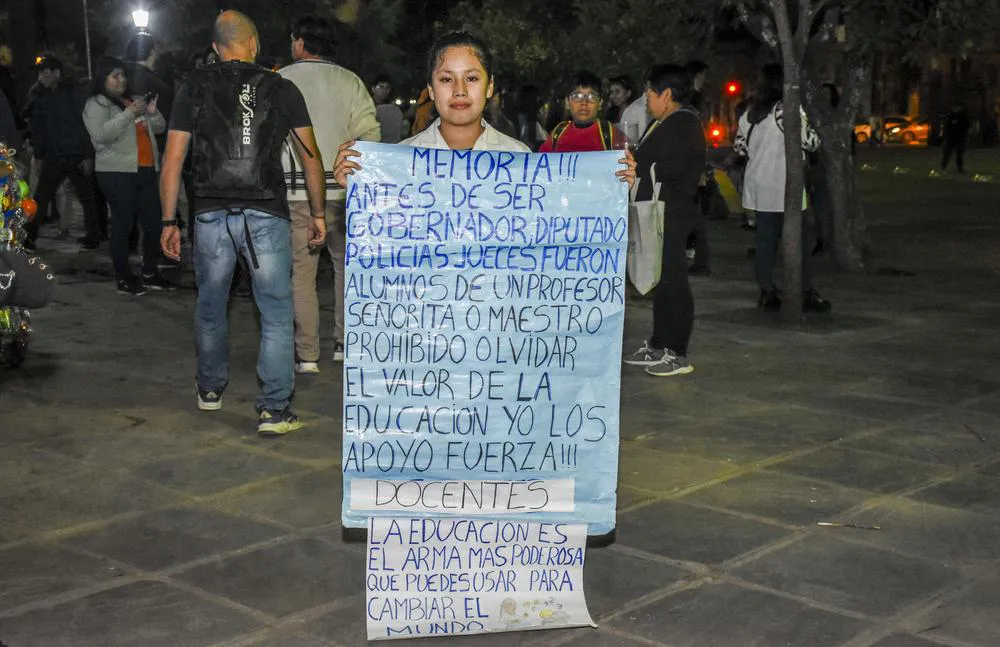 BROKSOL
MEMORIA!!!
ANTES DE SER
GOBERNADOR, DIPUTADO
POLICIAS-JUECES FUERON
ALUMNOS DE UN PROFESOR
SEÑORITA O MAESTRO
PROHIBIDO OLVIDAR
EL VALOR DE LA
EDUCACION YO LOS
APOYO FUERZA!!!
DOCENTES
LA EDUCACION ES
EL ARMA MAS PODEROSA
QUE PUEDES USAR PARA
CAMBIAR EL
MUNDO